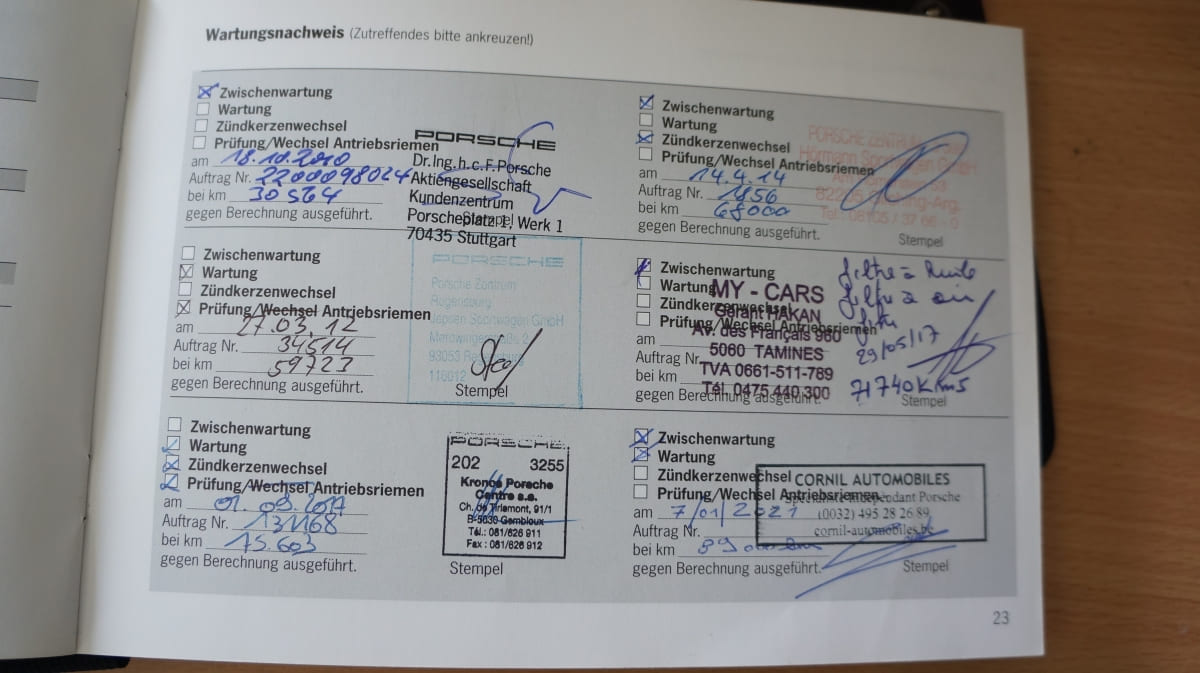 Wartungsnachweis (Zutreffendes bitte ankreuzen!)
Zwischenwartung
Wartung
Zündkerzenwechsel
Prüfung/Wechsel Antriebsriemen
am 18.10.2010
Auftrag Nr. 2200098024
bei km 30564
gegen Berechnung ausgeführt.
PORSCHE
Dr.Ing.h.c.F.Porsche
Aktiengesellschaft
Kundenzentrum
Porscheplatz 1, Werk 1
70435 Stuttgart
Stempel
Zwischenwartung
Wartung
Zündkerzenwechsel
Prüfung/Wechsel Antriebsriemen
am 14.4.14
Auftrag Nr. 1856
bei km 68000
gegen Berechnung ausgeführt.
PORSCHE ZENTRUM
Sportwagen GmbH
Stempel
Zwischenwartung
Wartung
Zündkerzenwechsel
Prüfung/Wechsel Antriebsriemen
am 27.03.12
Auftrag Nr. 34514
bei km 59723
gegen Berechnung ausgeführt.
PORSCHE
Porsche Zentrum
Regensburg
Jepsen Sportwagen GmbH
93053
116012
Stempel
Zwischenwartung
Wartung
Zündkerzenwechsel
Prüfung/Wechsel Antriebsriemen
am
Auftrag Nr.
bei km
gegen Berechnung ausgeführt.
MY - CARS
Gérant HAKAN
Av. des Français 960
5060 TAMINES
TVA 0661-511-789
Tél. 0475 440 300
filtre à
à
29/05/17
71740 Kms
Stempel
Zwischenwartung
Wartung
Zündkerzenwechsel
Prüfung/Wechsel Antriebsriemen
am 01.09.2017
Auftrag Nr. 131168
bei km 75.603
gegen Berechnung ausgeführt.
PORSCHE
202 3255
Kronos Porsche
Centre s.a.
Ch. de Tirlemont, 91/1
B-5030 Gembloux
Tél.: 081/626 911
Fax : 081/626 912
Stempel
Zwischenwartung
Wartung
Zündkerzenwechsel
Prüfung/Wechsel Antriebsriemen
am 7/01/2021
Auftrag Nr.
bei km
gegen Berechnung ausgeführt.
CORNIL AUTOMOBILES
Spécialiste Indépendant Porsche
(0032) 495 28 26 89
cornil-automobiles.be
Stempel
23